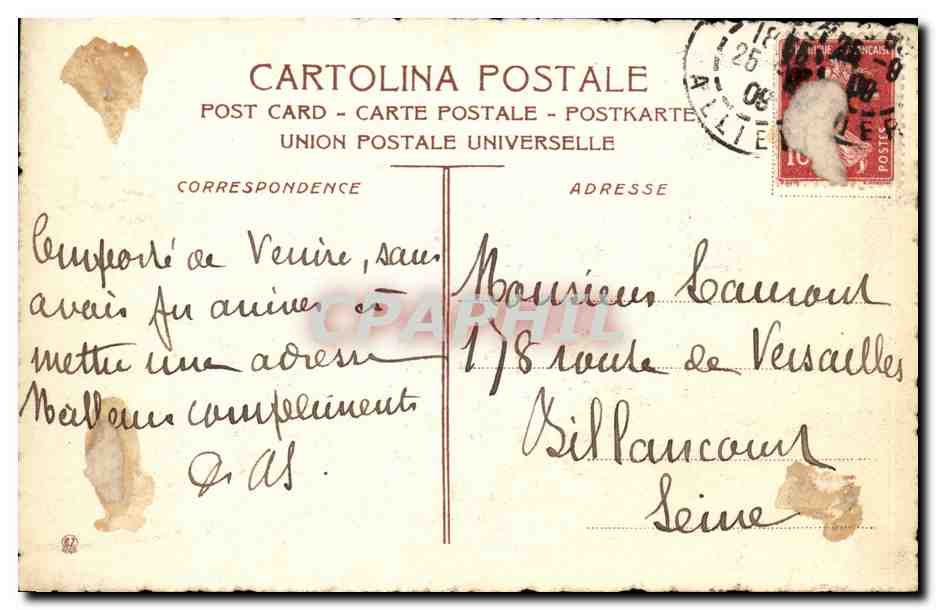 CARTOLINA POSTALE
POST CARD - CARTE POSTALE - POSTKARTE
UNION POSTALE UNIVERSELLE
CORRESPONDENCE
ADRESSE
Emporté de Venise, sans
avais pu arriver à
mettre une adresse
Meilleurs compliments
Monsieur Laumont
178 route de Versailles
Billancourt
Seine
CPAPHIL
18
25
09
POSTES
10